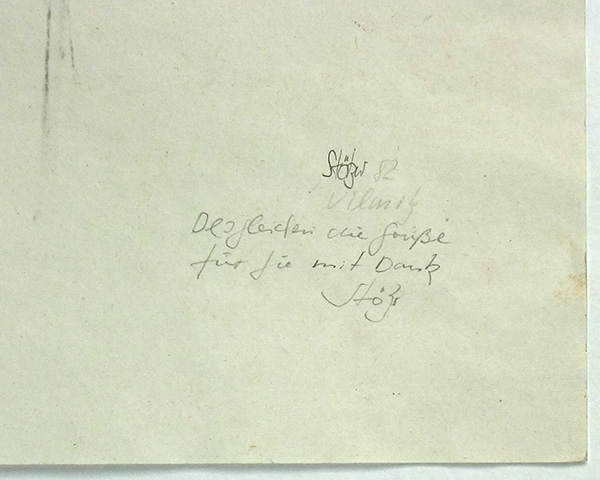 Stötzer 82
Vilmnitz
Desgleichen die Grüße
für Sie mit Dank
Stötz